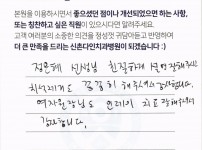 본원을 이용하시면서 좋으셨던 점이나 개선되었으면 하는 사항,
또는 칭찬하고 싶은 직원이 있으시다면 말씀해주세요.
고객 여러분의 소중한 의견을 정성껏 귀담아듣고 반영하여
더 큰 만족을 드리는 신촌다인치과병원이 되겠습니다 :)
친절하게 설명 잘해주시고
치석제거도 꼼꼼히 해주셔서 감사합니다.
감사합니다.